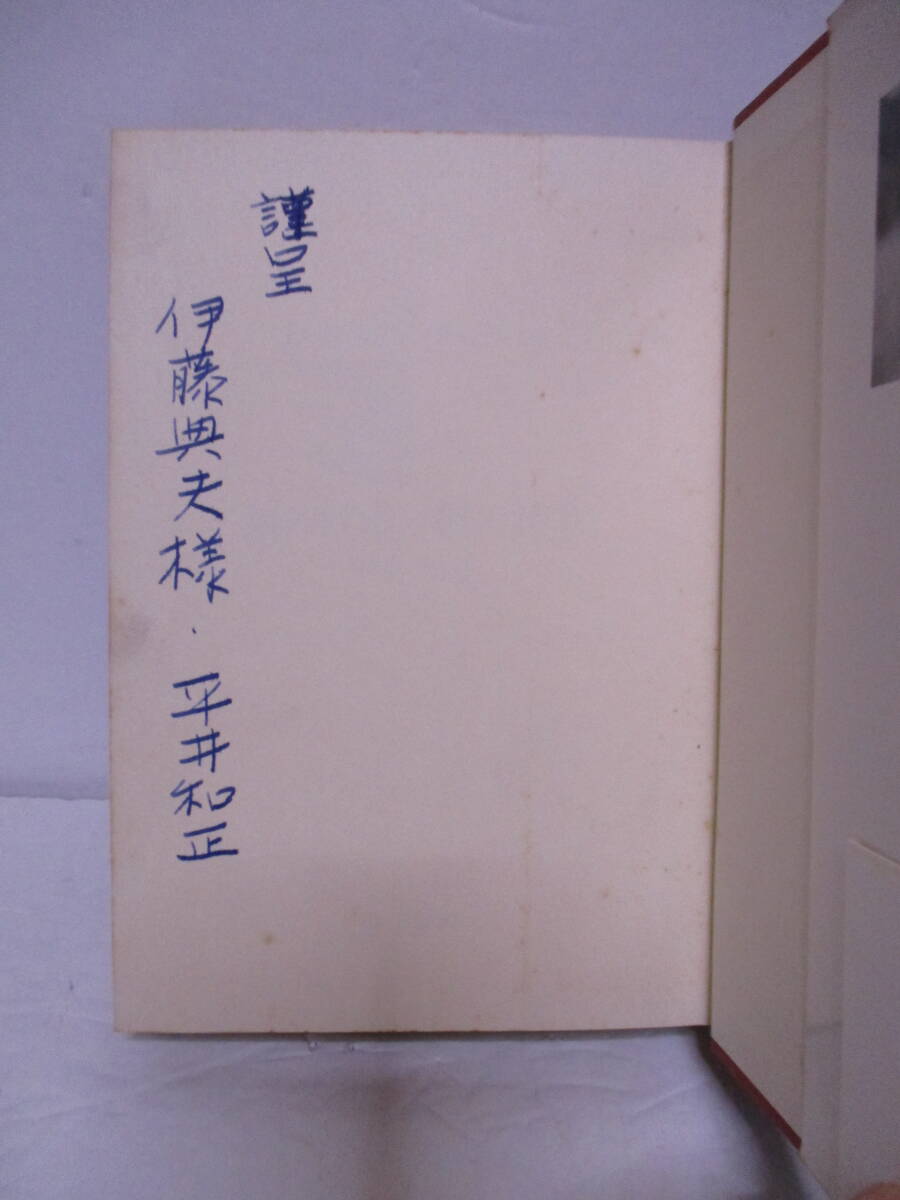 謹呈
伊藤典夫様・平井和正